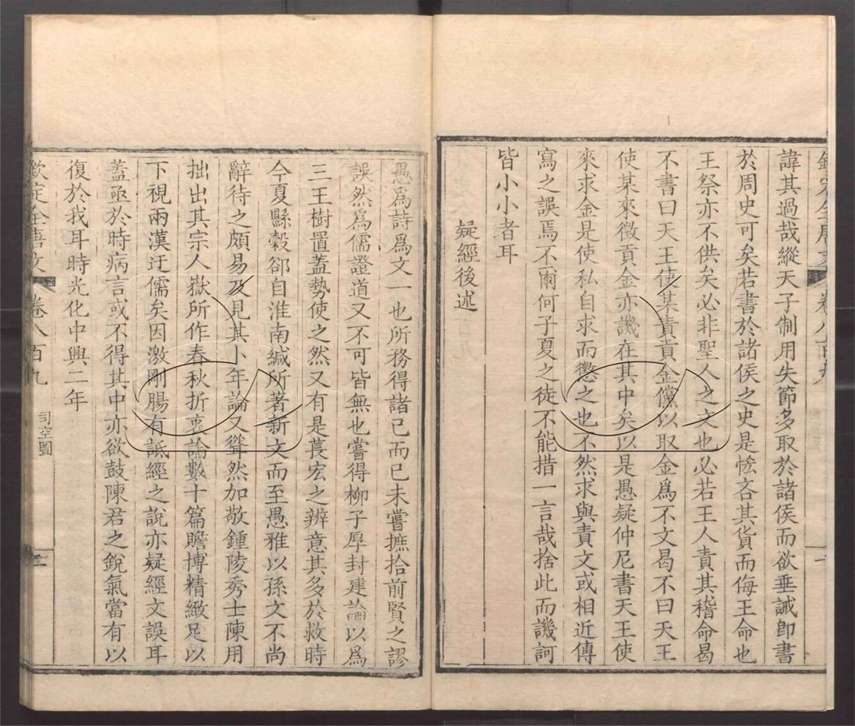 諱其過哉縱天子制用失節多取於諸侯而欲垂誡卽書
於周史可矣若書於諸侯之史是恡吝其貨而侮王命也
王祭亦不供矣必非聖人之文也必若王人責其稽命曷
不書曰天王使某責貢金儻以取金爲不文曷不曰天王
使某來徵貢金亦譏在其中矣以是愚疑仲尼書天王使
來求金是使私自求而懲之也不然求與責文或相近傳
寫之誤焉不爾何子夏之徒不能措一言哉捨此而譏訶
皆小小者耳
疑經後述
愚爲詩爲文一也所務得諸己而已未嘗摭拾前賢之謬
誤然爲儒證道又不可皆無也嘗得柳子厚封建論以爲
三王樹置蓋勢使之然又有是萇宏之辨意其多於救時
今夏縣穀郤自淮南緘所著新文而至愚雅以孫文不尚
辭待之頗易及見其小年論又聳然加敬鍾陵秀士陳用
拙出其宗人嶽所作春秋折衷論數十篇贍博精緻足以
下視兩漢迂儒矣因激剛腸有詆經之說亦疑經文誤耳
蓋亟於時病言或不得其中亦欲鼓陳君之銳氣當有以
復於我耳時光化中興二年
欽定全唐文 卷八百九 司空圖 三